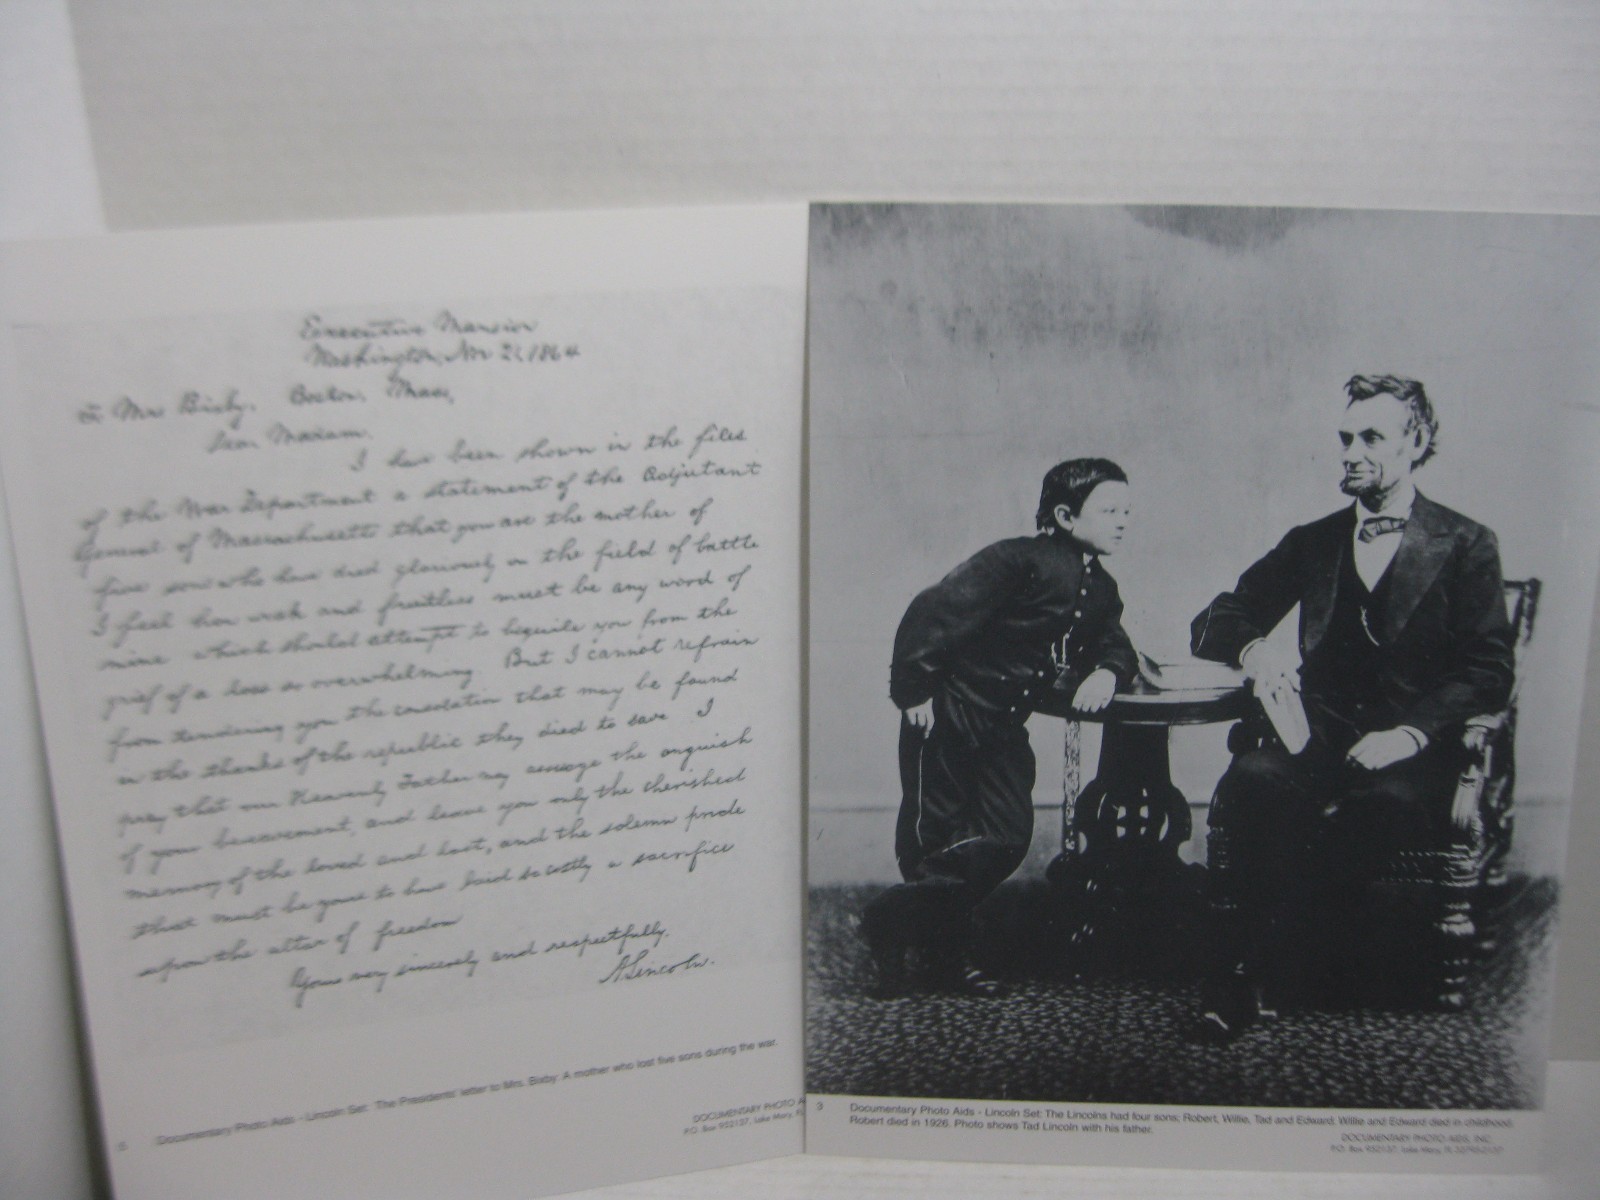 Executive Mansion
Washington, Nov 21, 1864
To Mrs Bixby, Boston, Mass,
Dear Madam.
I have been shown in the files
of the War Department a statement of the Adjutant
General of Massachusetts that you are the mother of
five sons who have died gloriously on the field of battle
I feel how weak and fruitless must be any word of
mine which should attempt to beguile you from the
grief of a loss so overwhelming. But I cannot refrain
from tendering you the consolation that may be found
in the thanks of the republic they died to save. I
pray that our Heavenly Father may assuage the anguish
of your bereavement, and leave you only the cherished
memory of the loved and lost, and the solemn pride
that must be yours to have laid so costly a sacrifice
upon the altar of freedom
Yours very sincerely and respectfully,
A. Lincoln.
5 Documentary Photo Aids - Lincoln Set: 'The Presidents' letter to Mrs. Bixby: A mother who lost five sons during the war.
DOCUMENTARY PHOTO A
P.O. Box 952137, Lake Mary, FL
3 Documentary Photo Aids - Lincoln Set: The Lincolns had four sons; Robert, Willie, Tad and Edward. Willie and Edward died in childhood.
Robert died in 1926. Photo shows Tad Lincoln with his father.
DOCUMENTARY PHOTO AIDS, INC.
P.O. Box 952137, Lake Mary, FL 32795-2137